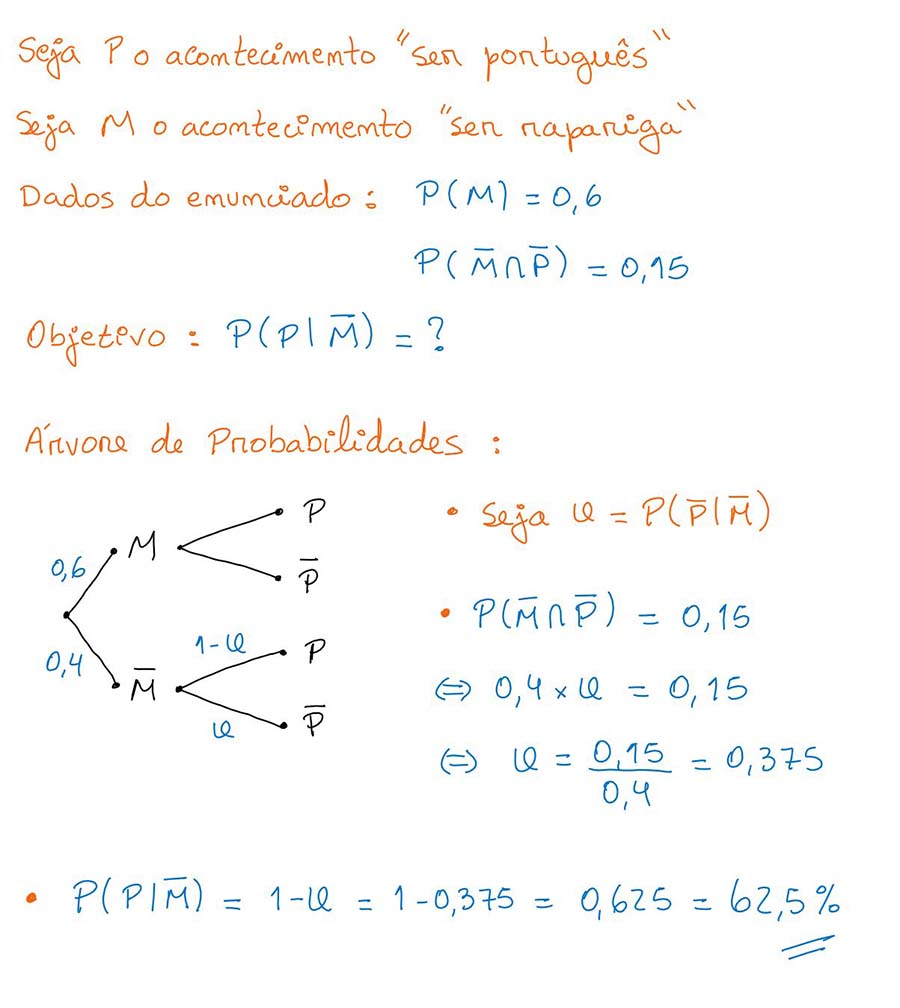 Seja P o acontecimento "ser português"
Seja M o acontecimento "ser rapariga"
Dados do enunciado : P(M) = 0,6
P(M̅∩P̅) = 0,15
Objetivo : P(P|M̅) = ?
Árvore de Probabilidades :
0,6
M
P
P̅
0,4
M̅
1-φ
P
φ
P̅
• Seja φ = P(P̅|M̅)
• P(M̅∩P̅) = 0,15
⇔ 0,4 × φ = 0,15
⇔ φ = 0,15/0,4 = 0,375
• P(P|M̅) = 1-φ = 1-0,375 = 0,625 = 62,5%